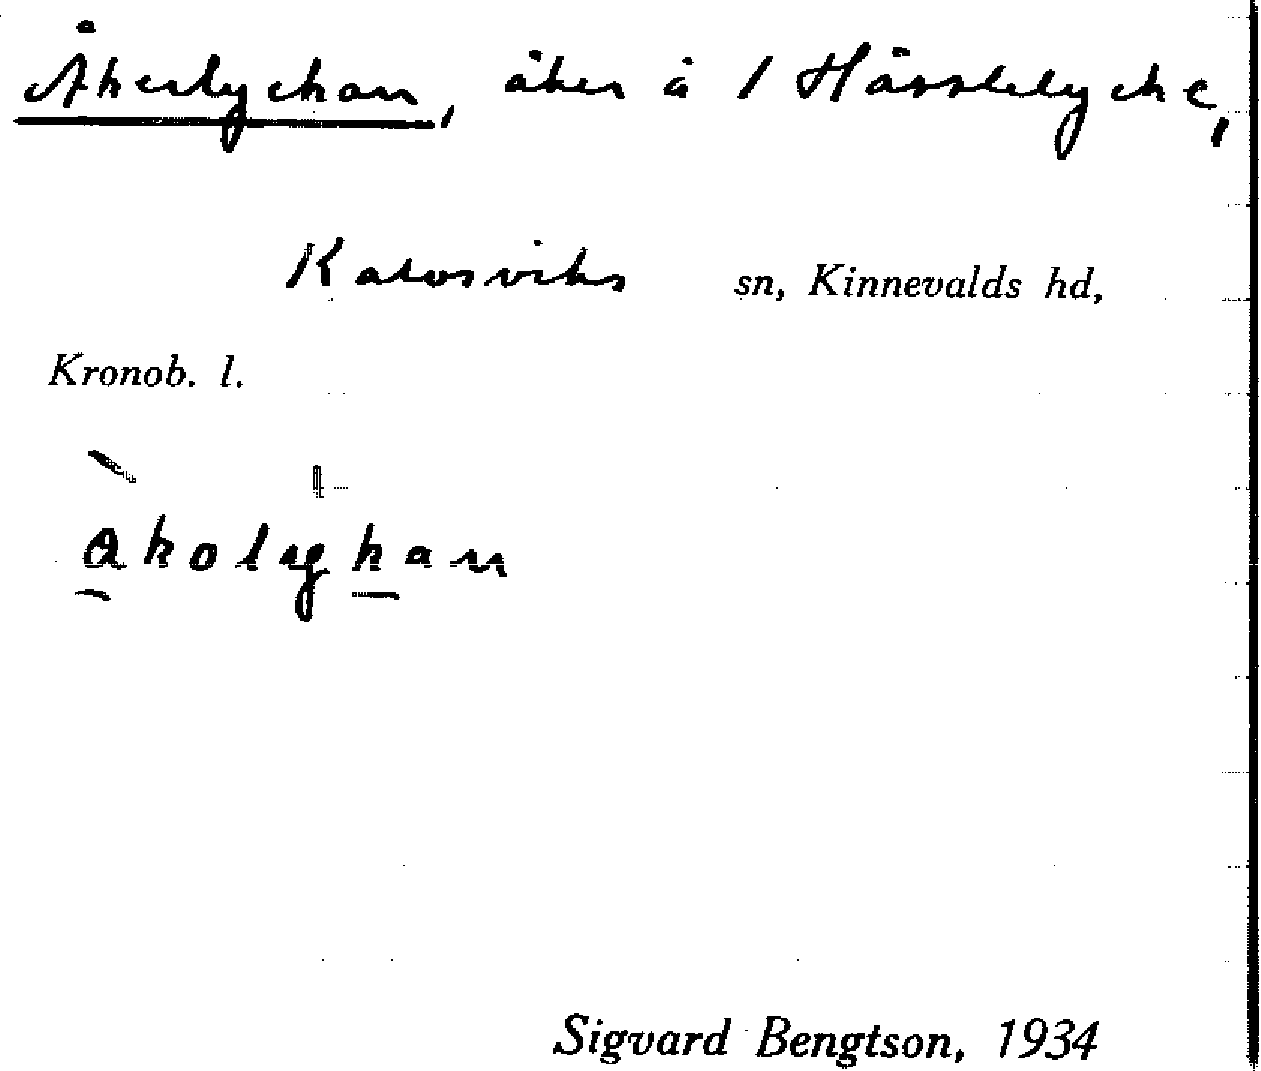 Åkerlyckan, åker å 1 Hässlelycke,
Kalvsviks sn, Kinnevalds hd,
Kronob. l.
Sigvard Bengtson, 1934